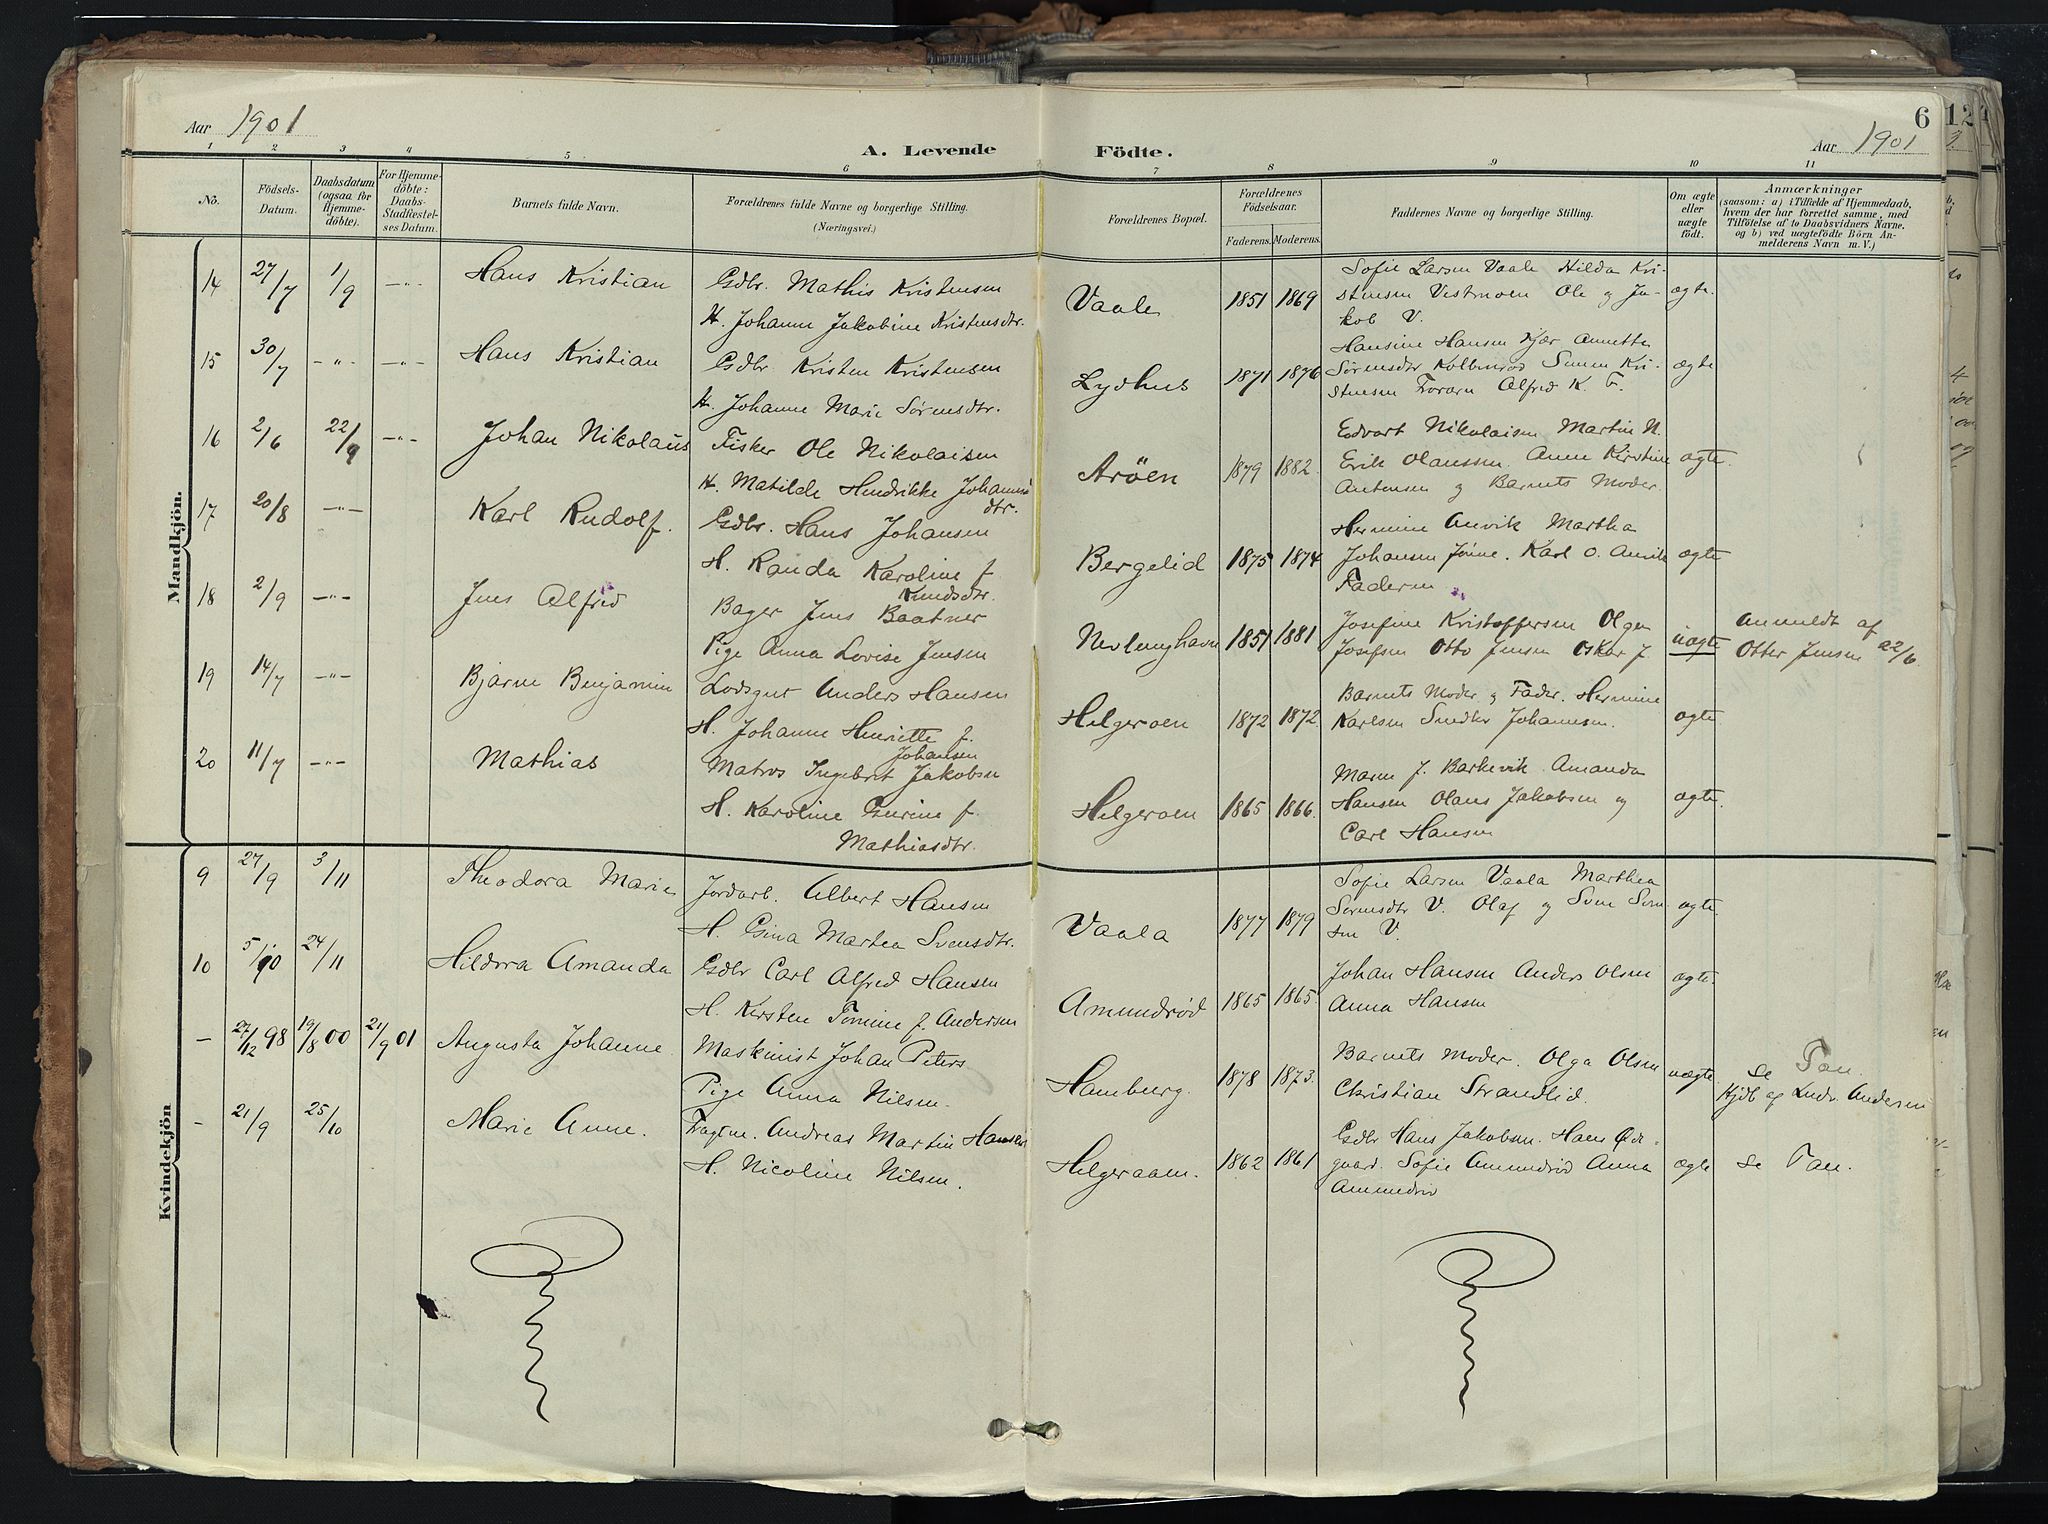 Aar 1901
A. Levende Födte.
Aar 1901
6
1 2 3 4 5 6 7 8 9 10 11
No.
Födsels-Datum.
Daabsdatum (ogsaa for Hjemmedöbte).
For Hjemmedöbte: Daabs-Stadfæstelses Datum.
Barnets fulde Navn.
Forældrenes fulde Navne og borgerlige Stilling.
(Næringsvei.)
Forældrenes Bopæl.
Forældrenes Födselsaar.
Faderens. Moderens.
Faddernes Navne og borgerlige Stilling.
Om ægte eller uægte födt.
Anmærkninger
(saasom: a) i Tilfælde af Hjemmedaab,
hvem der har forrettet samme, med
Tilföielse af to Daabsvidners Navne,
og b) ved uægtefödte Börn An-
melderens Navn m. V.)
Mandkjön.
14 27/7 1/9 -"- Hans Kristian
Gdbr. Mathis Kristensen
H. Johanne Jakobine Kristensdtr.
Vaale 1851 1869
Sofie Larsen Vaale Hilda Kri-
stensen Vestmoen Ole og Ja-
kob V.
ægte.
15 30/7 -"- -"- Hans Kristian
Gdbr. Kristen Kristensen
H. Johanne Marie Sørensdtr.
Lydhus 1871 1876
Hansine Hansen Kjær Annette
Sørensdtr Kolbenrød Simen Kri-
stensen Alfred K. F.
ægte
16 2/6 22/9 -"- Johan Nikolaus
Fisker Ole Nikolaisen
H. Matilde Hendrikke Johannsdtr.
Arøen 1879 1882.
Edvart Nikolaisen Martin N.
Erik Olanssen. Anne Kirstine
Antensen og Barnets Moder.
ægte.
17 20/8 -"- Karl Rudolf.
Gdbr. Hans Johansen
H. Randa Karoline f. Knudsdtr.
Bergelid 1875 1874
Hermine Anvik Martha
Johansen Karl O. Anvik
Faderen
ægte
18 2/9 -"- Jens Alfred
Bager Jens Baatner
Pige Anna Lovise Jensen
Nevlunghavn 1851 1881
Josefine Kristoffersen Olga
Josefsen Otto Jensen Oskar J.
uægte
Anmeldt af
Otter Jensen 22/6.
19 14/7 -"- Bjarne Benjamin
Lodsgut Anders Hansen
H. Johanne Henriette f. Johansen
Helgeroen 1872 1872
Barnets Moder og Fader. Hermine
Karlsen Johannsen.
ægte
20 11/7 -"- Mathias
Matros Ingebret Jakobsen
H. Karoline Gurine f.
Mathiasdtr.
Helgeroen 1865 1866
Maren J. Barkevik. Amanda
Hansen Olaus Jakobsen og
Carl Hansen
ægte.
Kvindekjön
9 27/9 3/11 Theodora Marie
Jordarb. Albert Hansen
H. Gina Martea Svensdtr.
Vaala 1877 1879
Sofie Larsen Vaala Marthea
Sørensdtr V. Olaf og
V.
ægte.
10 5/10 24/11 Hildora Amanda
Gdbr Carl Alfred Hansen
H. Kirsten Tomine f. Andersen
Amundrød 1865 1865
Johan Hansen Anders Olsen
Anna Hansen
ægte.
- 27/12 98 19/8 00 21/9 01 Augusta Johanne
Maskinist Johan Peters
Pige Anna Nilsen.
Hamburg. 1878 1873.
Barnets Moder. Olga Olsen
Christian Strandlid.
uægte.
se Tan.
Hjdb af Ludv. Andersen
- 21/9 25/10 Marie Anne.
Fragtm. Andreas Martin Hansen
H. Nicoline Nilsen.
Helgeraaen. 1862 1861
Gdbr Hans Jakobsen. Hans Øde-
gaard. Sofie Amundrød Anna
Amundrød
ægte
se Tan.